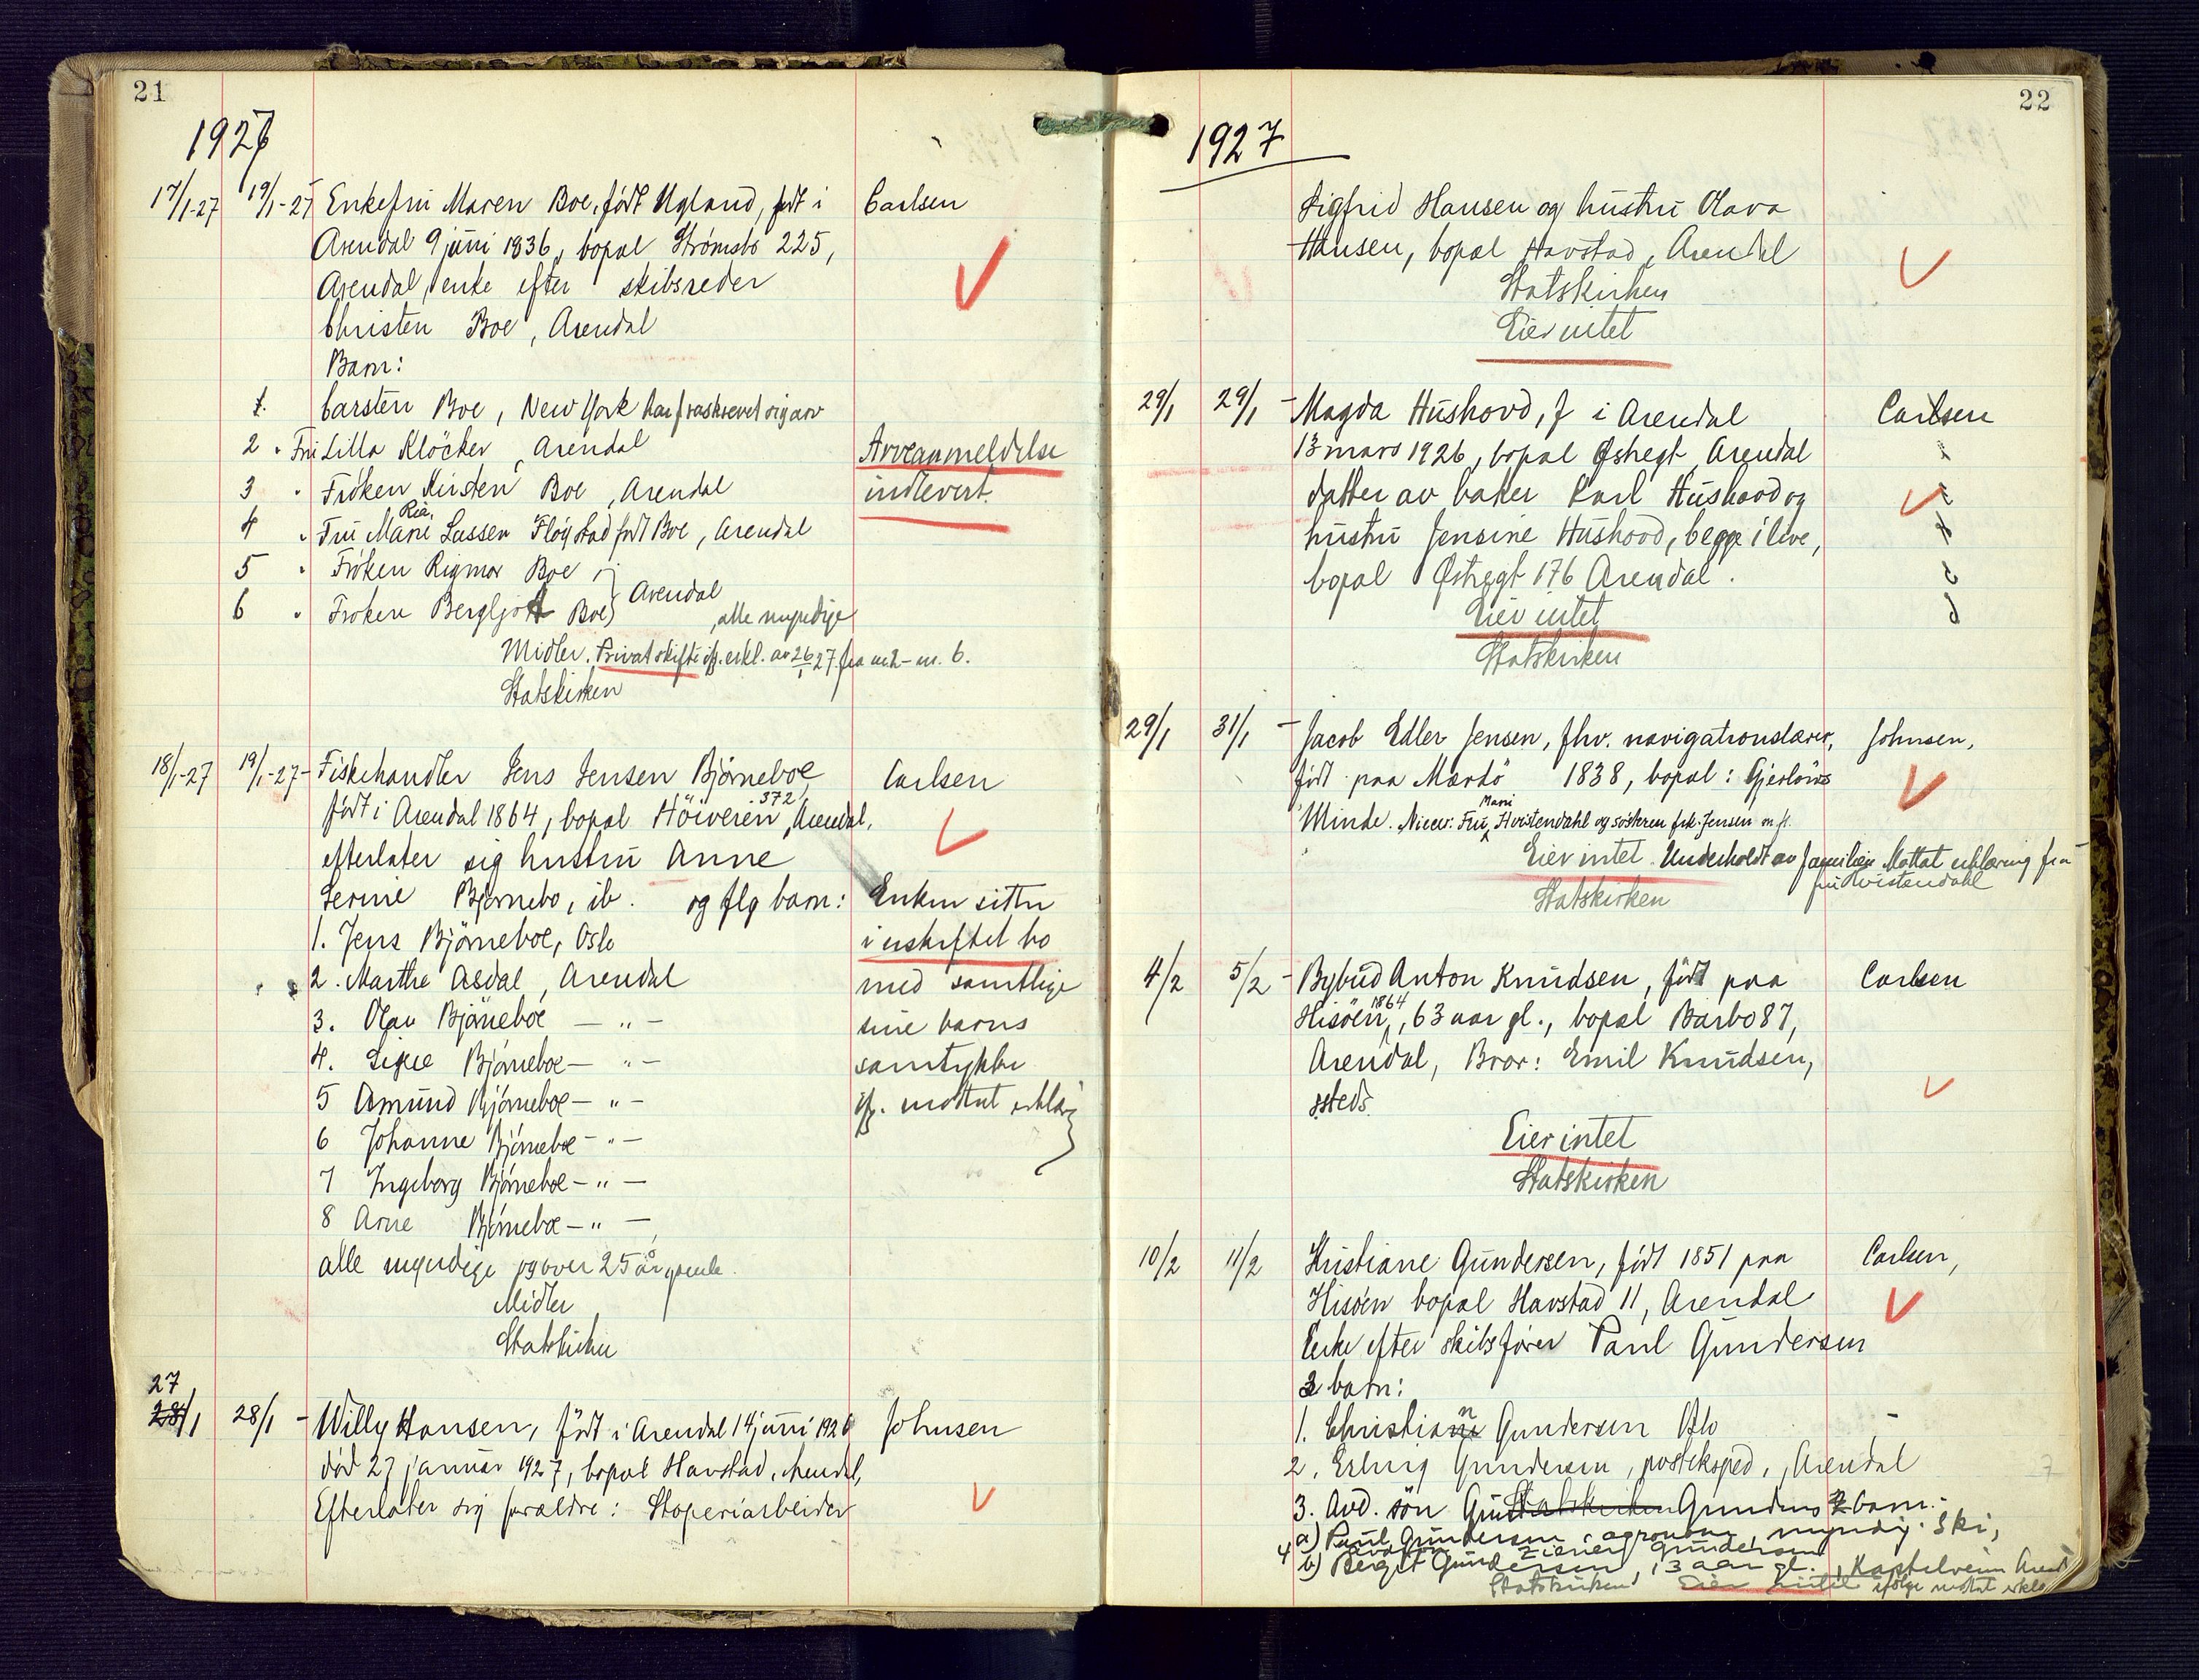 21
1927
17/1-27 19/1-27 Enkefru Maren Boe, født Ugland, født i Carlsen
Arendal 9 juni 1836, bopal Strømsbo 225,
Arendal, enke efter skibsreder
Christen Boe, Arendal
Barn:
1. Carsten Boe, New York har fraskrevet sig arv
2 " Fru Lilla Klöcker, Arendal Arveanmeldelse
3 " Frøken Kirsten Boe, Arendal indlevert.
Ria,
4 " Fru Marie Lassen Fløystad født Boe, Arendal
5 " Frøken Rigmor Boe
6 " Frøken Bergljot Boe } Arendal, alle myndige
Midler. Privat skifte ifl. erkl. av 26/1 27 fra nr. 2 - nr. 6.
Statskirken
18/1-27 19/1-27 - Fiskehandler Jens Jensen Bjørneboe, Carlsen
født i Arendal 1864, bopal Höiveien 372, Arendal,
efterlater sig hustru Anne
Serine Bjørnebo, ib. og flg barn: Enken sitter
1. Jens Bjørneboe, Oslo i uskiftet bo
2. Marthe Asdal, Arendal med samtlige
3. Olav Bjørneboe — " — sine barns
4. Signe Bjørneboe — " — samtykke
5 Amund Bjørneboe — " — ifl. mottat erklæring
6 Johanne Bjørneboe — " —
7 Ingeborg Bjørneboe — " —
8 Arne Bjørneboe — " —
alle myndige og over 25 år gamle.
Midler
Statskirken
27
28/1 28/1 - Willy Hansen, født i Arendal 14 juni 1926 Johnsen
død 27 januar 1927, bopal Havstad, Arendal,
Efterlater sig forældre: Støperiarbeider
22
1927
Sigfrid Hansen og hustru Olava
Hansen, bopal Havstad, Arendal
Statskirken
Eier intet
29/1 29/1 - Magda Hushovd, f i Arendal Carlsen
13 mars 1926, bopal Østregt, Arendal
datter av baker Karl Hushovd og
hustru Jensine Hushovd, begge i live,
bopal Østregt 176 Arendal.
Eier intet
Statskirken
29/1 31/1 - Jacob Edler Jensen, fhv. navigationslærer, Johnsen,
født paa Mærdö 1838, bopal: Gjesløvs
Minde. Niecer: Fru Marie Hvistendahl og søsteren frk. Jensen m. fl.
Eier intet. Underholdt av familien Mottat erklæring fra
fru Hvistendahl
Statskirken
4/2 5/2 - Bybud Anton Knudsen, født paa Carlsen
Hisöen 1864, 63 aar gl., bopal Barbo 87,
Arendal, Bror: Emil Knudsen,
ssteds.
Eier intet
Statskirken
10/2 11/2 Kristiane Gundersen, født 1851 paa Carlsen,
Hisöen bopal Havstad 11, Arendal
Enke efter skibsfører Paul Gundersen
3 barn:
1. Christian Gundersen Oslo
2. Erling Gundersen, posteksped., Arendal
3. Avd. søn Gundersens 2 barn:
a) Paul Gundersen, agronom, myndig. Ski,
b) Bergit Gundersen, 13 aar gl., Kastelveien Arend.
Statskirken Eier intet ifølge mottat erklæ